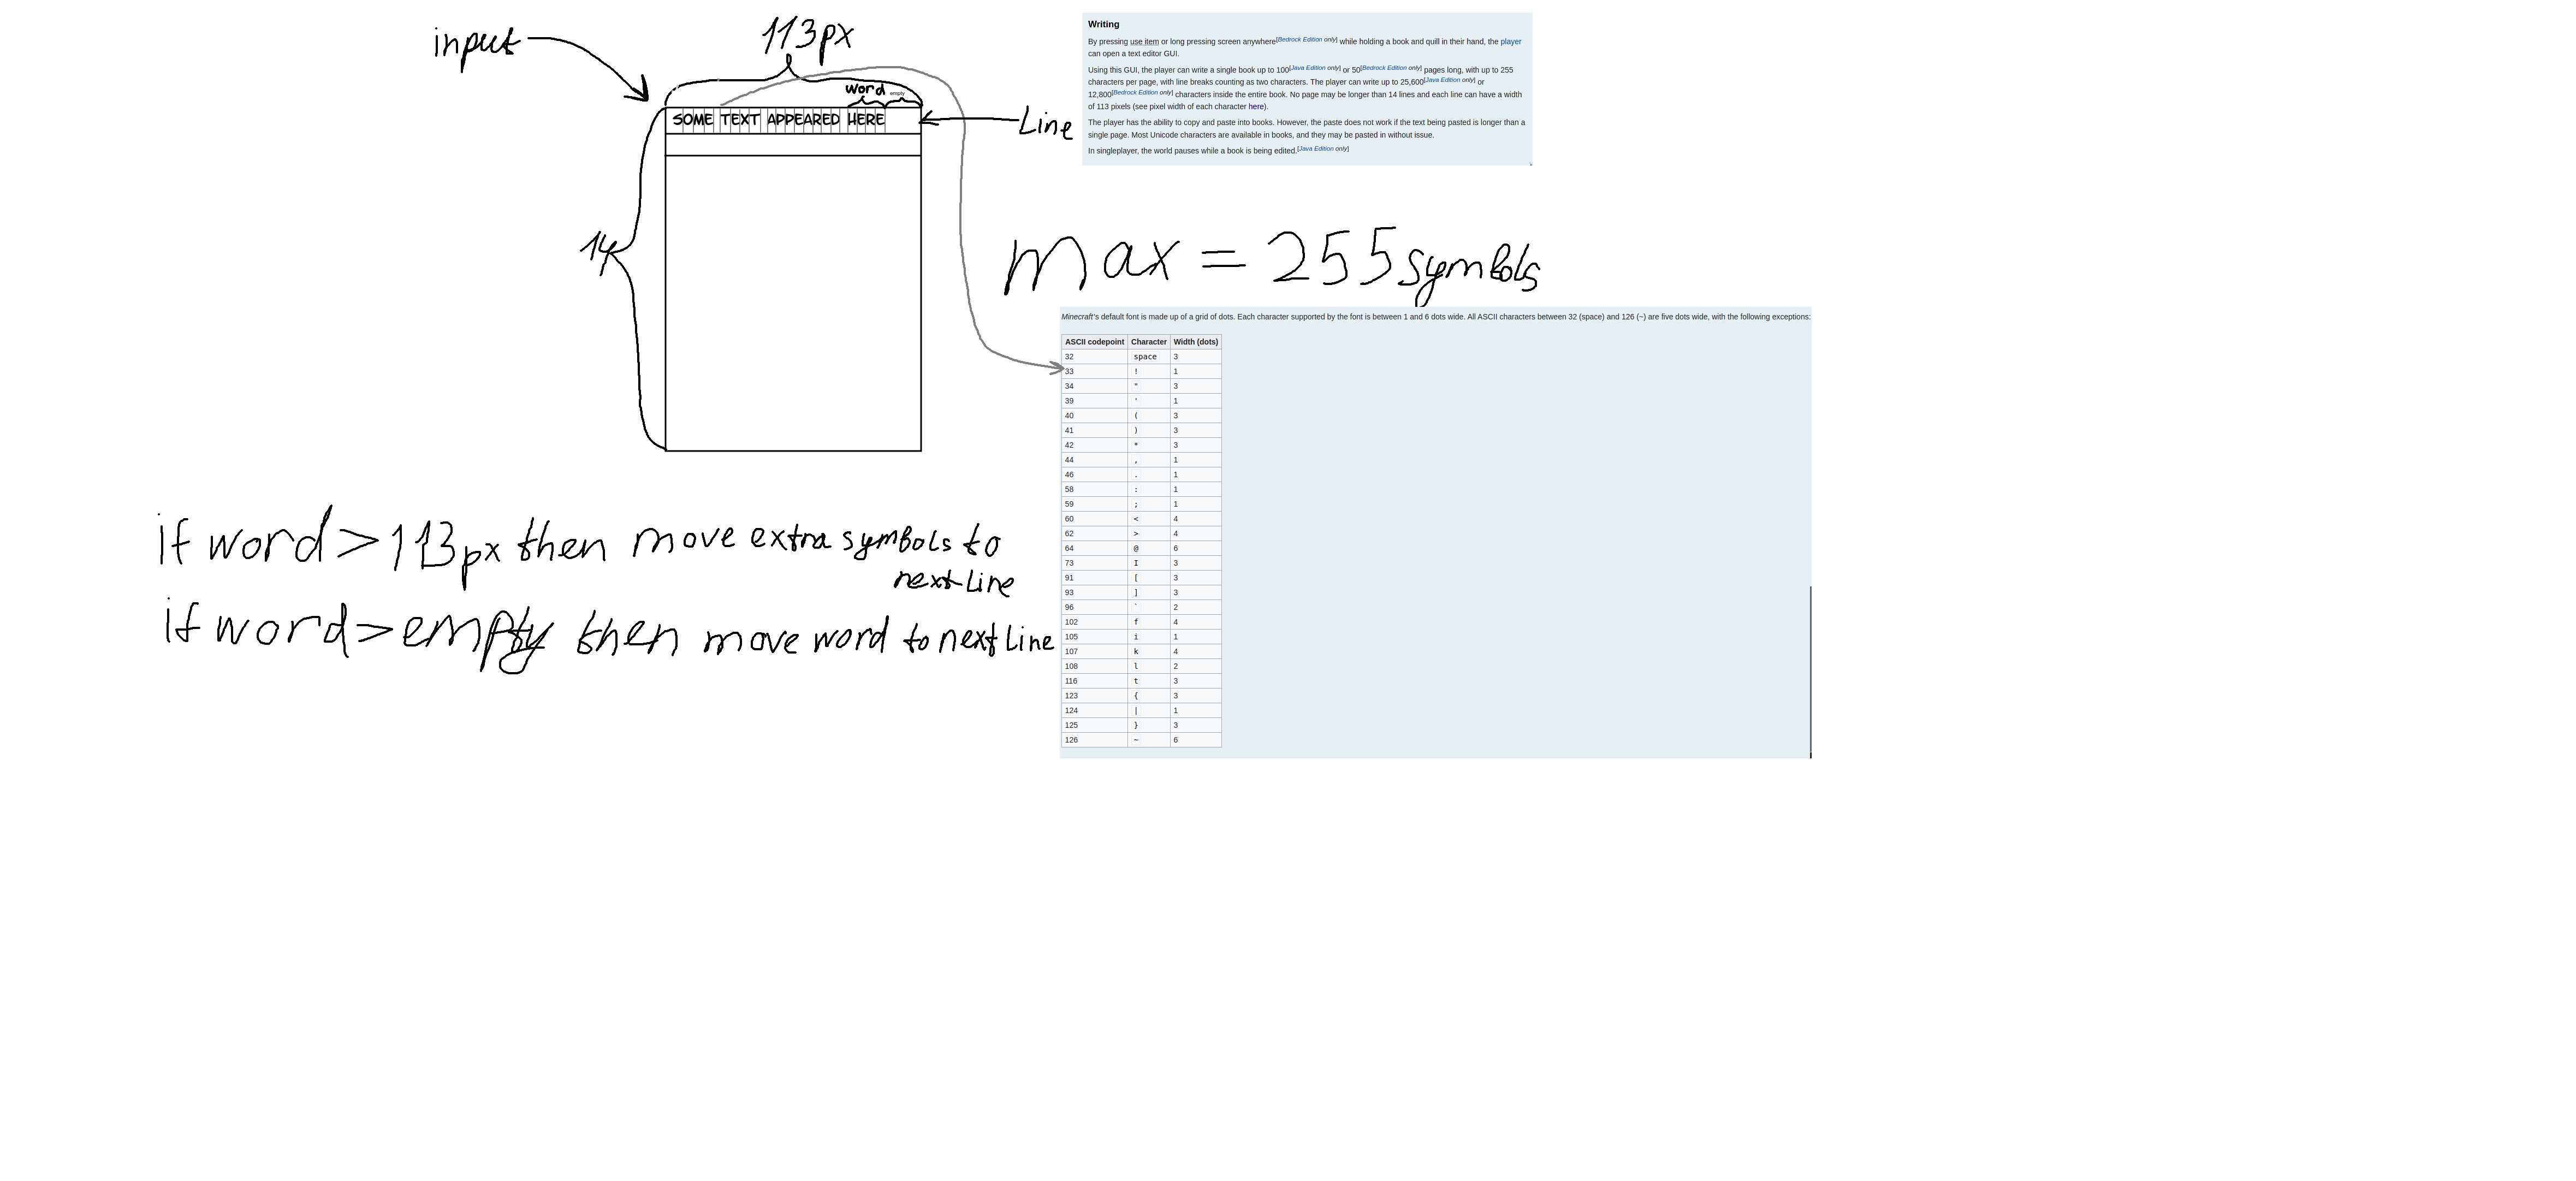 input
113px
word
empty
SOME TEXT APPEARED HERE
Line
14
Writing
By pressing use item or long pressing screen anywhere[Bedrock Edition only] while holding a book and quill in their hand, the player
can open a text editor GUI.
Using this GUI, the player can write a single book up to 100[Java Edition only] or 50[Bedrock Edition only] pages long, with up to 255
characters per page, with line breaks counting as two characters. The player can write up to 25,600[Java Edition only] or
12,800[Bedrock Edition only] characters inside the entire book. No page may be longer than 14 lines and each line can have a width
of 113 pixels (see pixel width of each character here).
The player has the ability to copy and paste into books. However, the paste does not work if the text being pasted is longer than a
single page. Most Unicode characters are available in books, and they may be pasted in without issue.
In singleplayer, the world pauses while a book is being edited.[Java Edition only]
max = 255 symbols
Minecraft's default font is made up of a grid of dots. Each character supported by the font is between 1 and 6 dots wide. All ASCII characters between 32 (space) and 126 (~) are five dots wide, with the following exceptions:
ASCII codepoint Character Width (dots)
32 space 3
33 ! 1
34 " 3
39 ' 1
40 ( 3
41 ) 3
42 * 3
44 , 1
46 . 1
58 : 1
59 ; 1
60 < 4
62 > 4
64 @ 6
73 I 3
91 [ 3
93 ] 3
96 ` 2
102 f 4
105 i 1
107 k 4
108 l 2
116 t 3
123 { 3
124 | 1
125 } 3
126 ~ 6
if word > 113px then move extra symbols to
next line
if word > empty then move word to next line